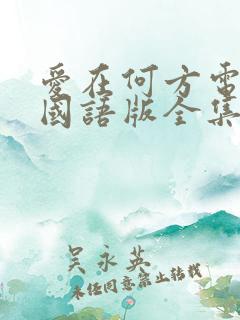 愛在何方電
國語版全集
吴永英
未经同意禁止转载